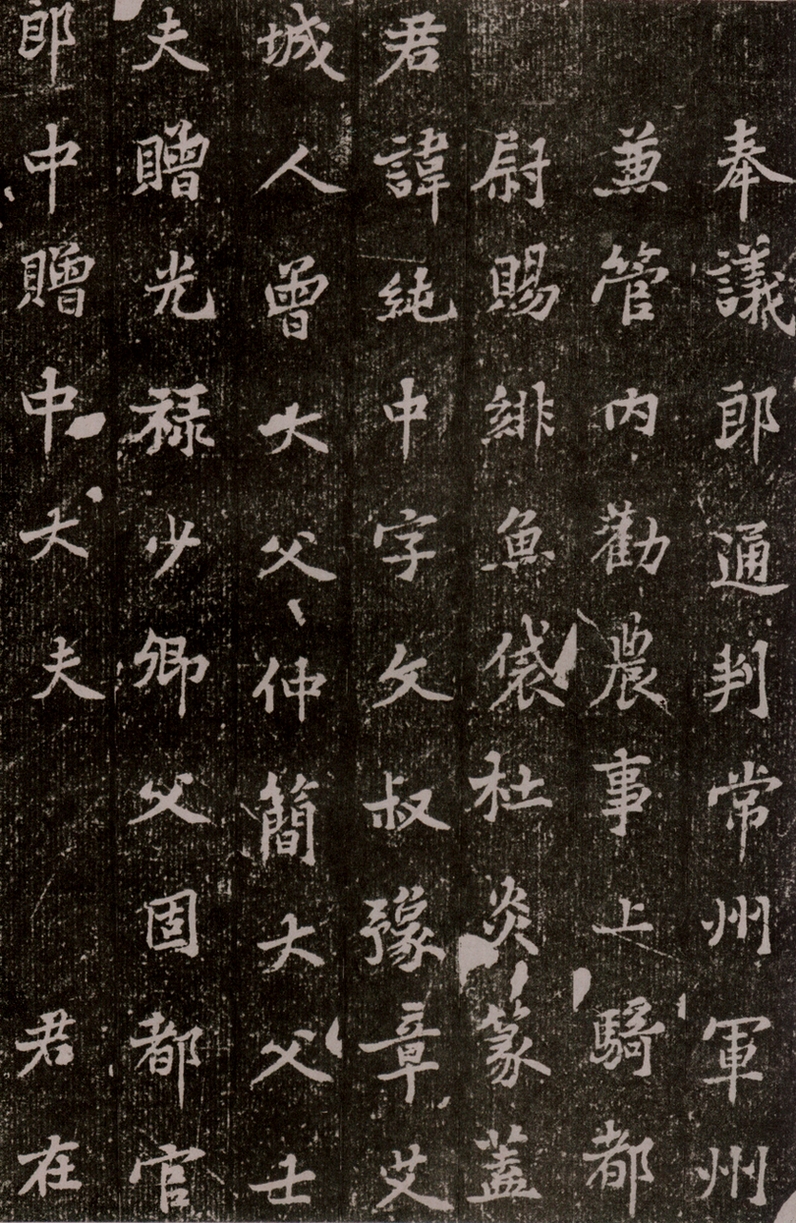 奉議郎通判常州軍州
兼管内勸農事上騎都
尉賜緋魚袋杜炎篆蓋
君諱純中字文叔豫章艾
城人曾大父仲簡大父士
夫贈光禄少卿父固都官
郎中贈中大夫君在